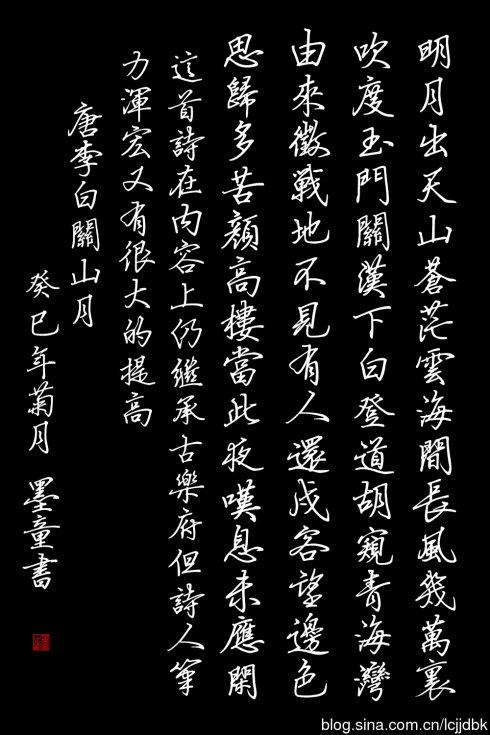 明月出天山蒼茫雲海間長風幾萬裏
吹度玉門關漢下白登道胡窺青海灣
由來徵戰地不見有人還戍客望邊色
思歸多苦顏高樓當此夜嘆息未應閑
這首詩在內容上仍繼承古樂府但詩人筆
力渾宏又有很大的提高
唐李白關山月
癸巳年菊月 墨童書
blog.sina.com.cn/lcjjdbk